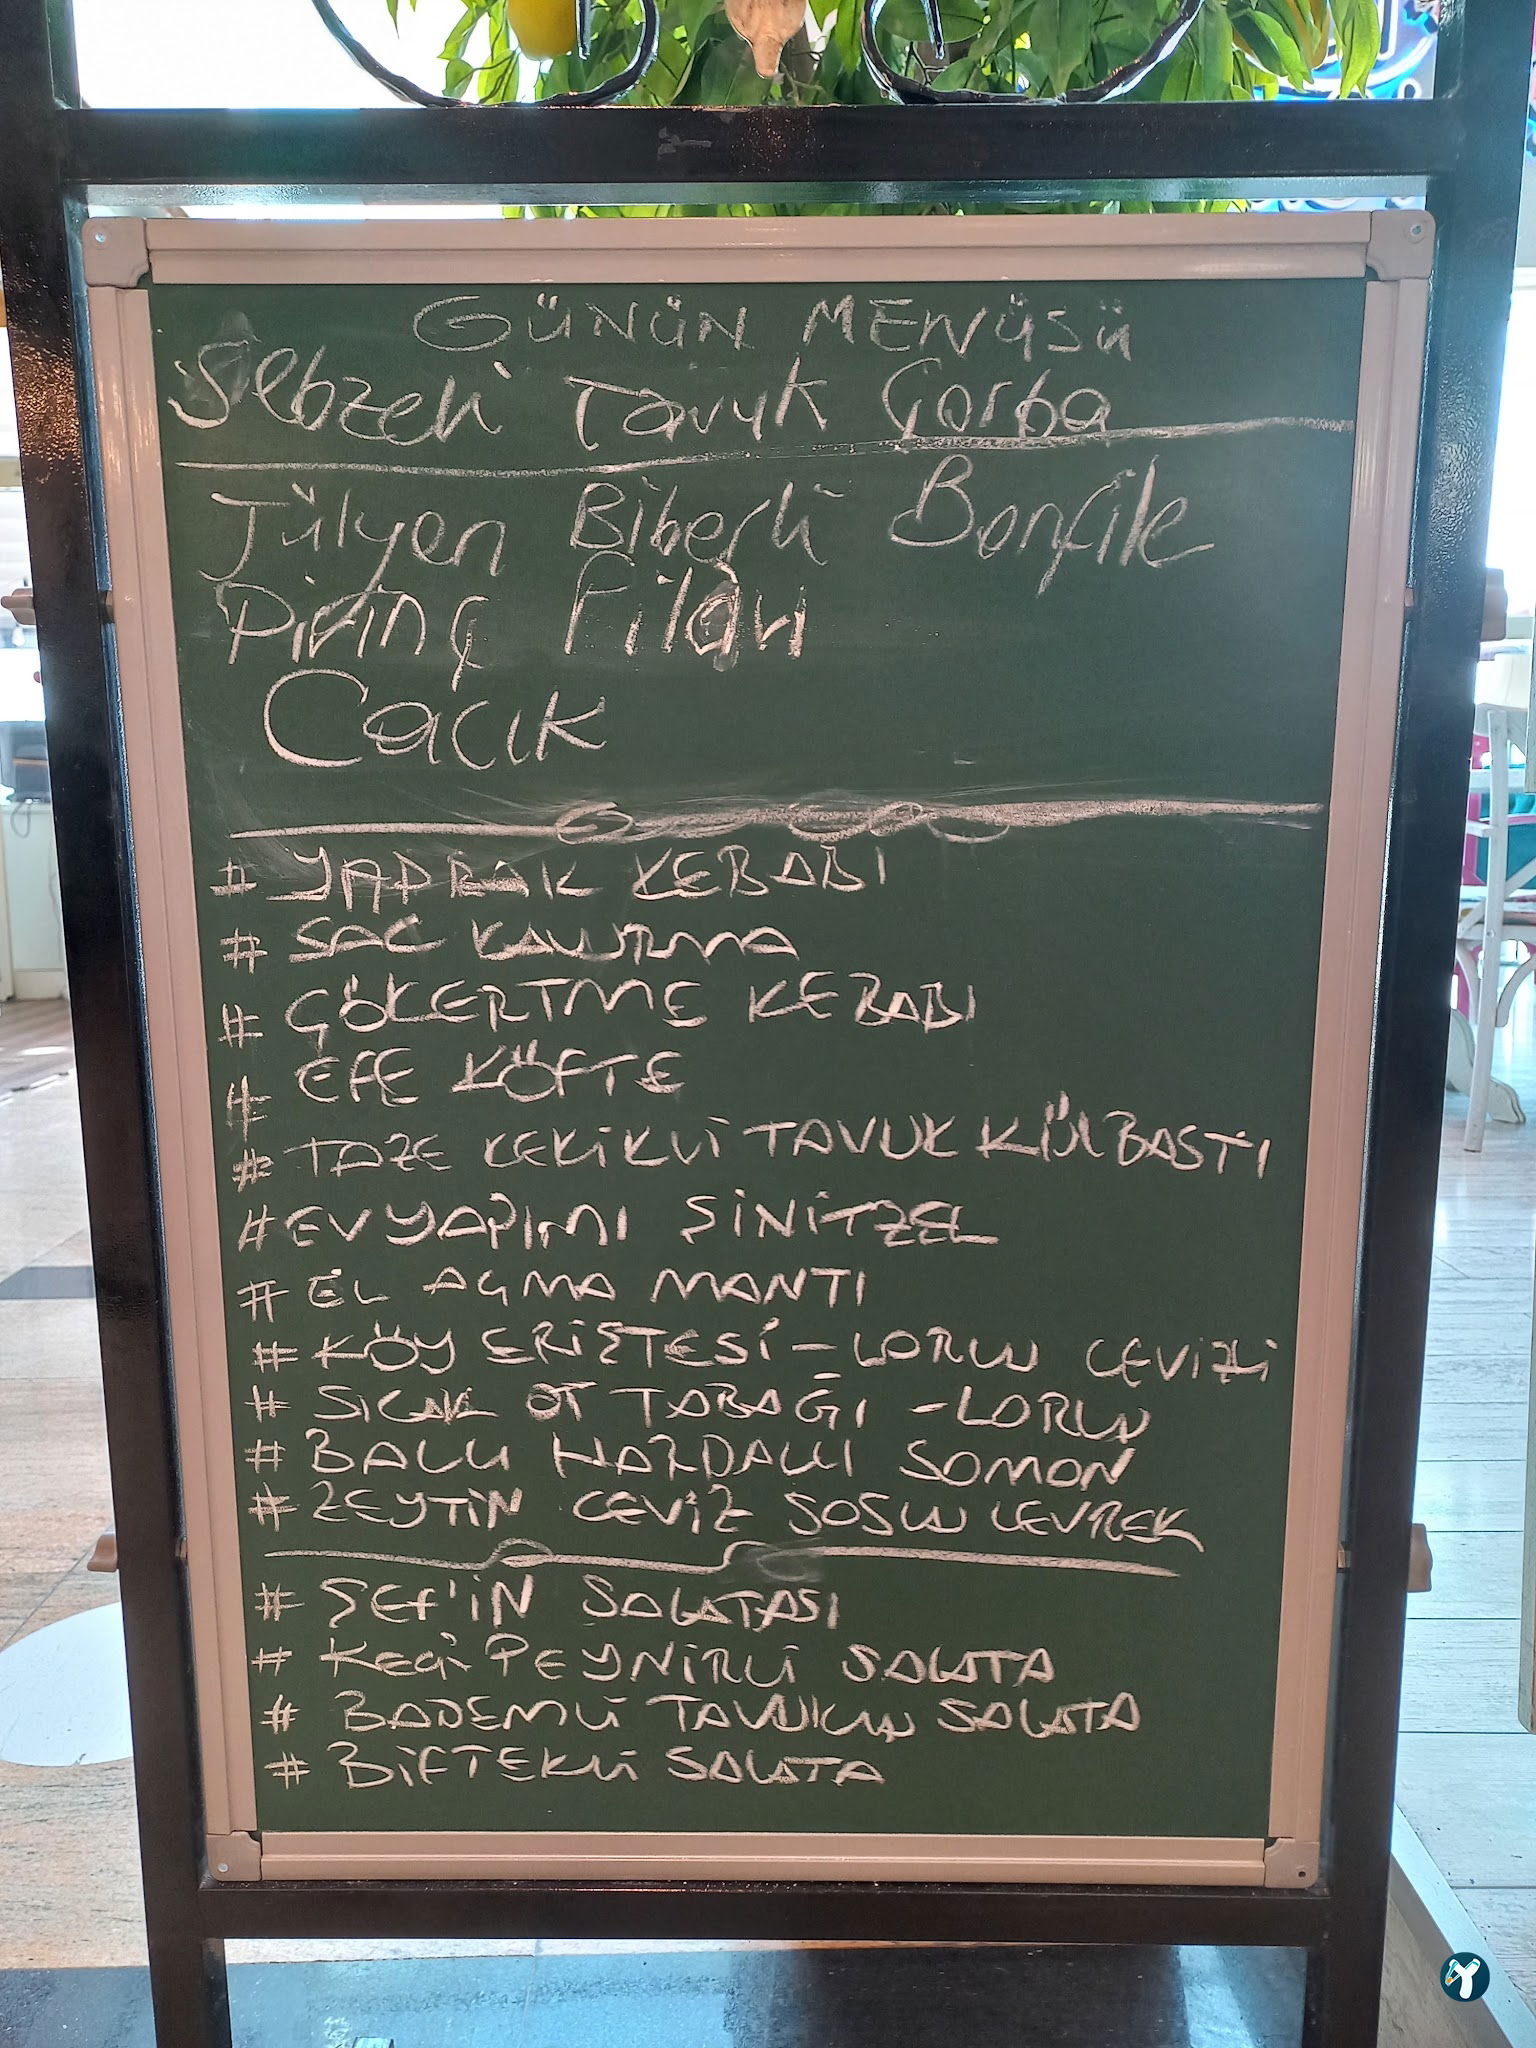 GÜNÜN MENÜSÜ
Sebzeli Tavuk Çorba
Jülyen Biberli Bonfile
Pirinç Pilavı
Cacık
# YAPRAK KEBABI
# SAC KAVURMA
# ÇÖKERTME KEBABI
# EFE KÖFTE
# TAZE KEKİKLİ TAVUK KÜLBASTI
# EV YAPIMI ŞİNİTZEL
# EL AÇMA MANTI
# KÖY ERİŞTESİ - LORLU CEVİZLİ
# SICAK OT TABAĞI - LORLU
# BALLI HARDALLI SOMON
# ZEYTİN CEVİZ SOSLU LEVREK
# ŞEF'İN SALATASI
# KEÇİ PEYNİRLİ SALATA
# BADEMLİ TAVUKLU SALATA
# BİFTEKLİ SALATA